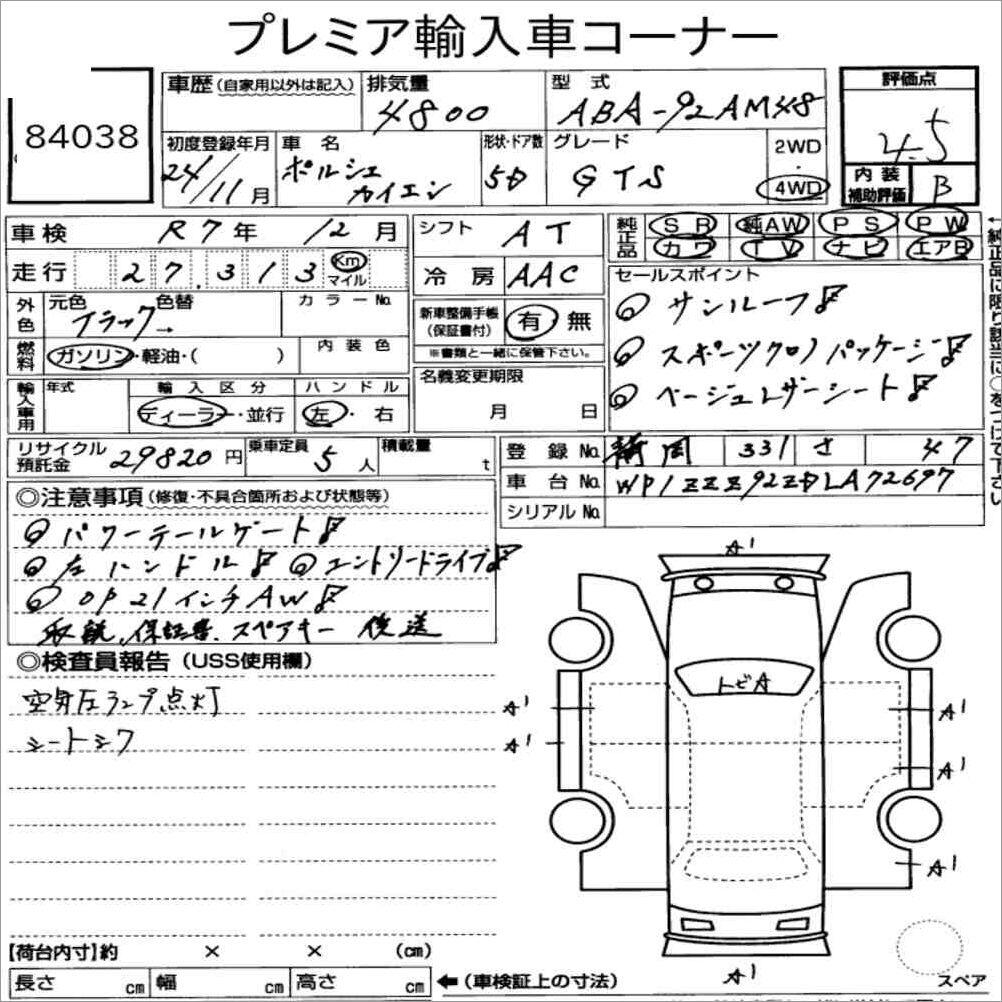 プレミア輸入車コーナー
84038
車歴(自家用以外は記入) 排気量 型式
4800 ABA-92AM48
評価点
4.5
初度登録年月 車名 形状・ドア数 グレード 2WD
24/11月 ポルシェ カイエン 5D GTS 4WD
内装補助評価 B
車検 R7年 12月
シフト AT
純正品 SR 純AW PS PW
カワ TV ナビ エアB
走行 27,313 Km マイル
冷房 AAC
セールスポイント
外色 元色 色替 カラーNo.
ブラック→
新車整備手帳(保証書付) 有 無
※書類と一緒に保管下さい。
◎サンルーフ!!
燃料 ガソリン・軽油・( ) 内装色
◎スポーツクロノパッケージ!!
輸入車用 年式 輸入区分 ハンドル
ディーラー・並行 左・右
名義変更期限
月 日
◎ベージュレザーシート!!
←純正品に限り該当に○をつけて下さい
リサイクル預託金 29820円 乗車定員 5人 積載量 t
登録No. 静岡 331 さ 47
車台No. WP1ZZZ92ZDLA72697
シリアルNo.
◎注意事項(修復・不具合箇所および状態等)
◎パワーテールゲート!!
◎左ハンドル!! ◎エントリードライブ!!
◎OP21インチAW!!
取説、保証書、スペアキー 後送
◎検査員報告(USS使用欄)
空気圧ランプ点灯
シートシワ
A1
トビA
A1
A1
A1
A1
A1
A1
【荷台内寸】約 × × (cm)
長さ cm 幅 cm 高さ cm ←(車検証上の寸法)
スペア